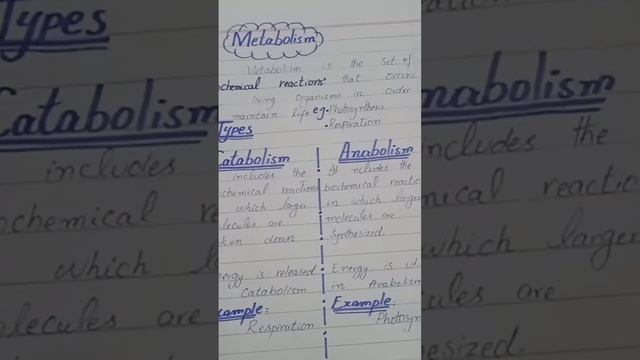 Metabolism
Metabolism is the set of
ochemical reactions that occurs
living organisms in order
maintain life eg. • Photosynthesis
Types • Respiration
Catabolism
includes the
ochemical reactions
which larger
molecules are
ken down
ergy is released
Catabolism
xample:
Respiration
Anabolism
It includes the
biochemical reactio
in which larger
molecules are
synthesized.
Energy is uti
in Anabolism
Example:
Photosyn
Types
Catabolism
includes
ochemical re
which
olecules are
nabolism
ncludes the
mical reactio
which larger
ules are
hesized.